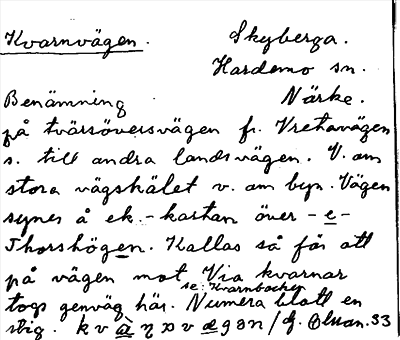 Kvarnvägen. Skyberga.
Hardemo sn.
Benämning Närke.
på tvärsöversvägen fr. Vretavägen
s. till andra landsvägen. V. om
stora vägskälet v. om byn. Vägen
synes å ek.-kartan över -e-
Thorshögen. Kallas så för att
på vägen mot Via kvarnar
se: Kvarnbacken
togs genväg här. Numera blott en
stig. / G. Olsson. 33